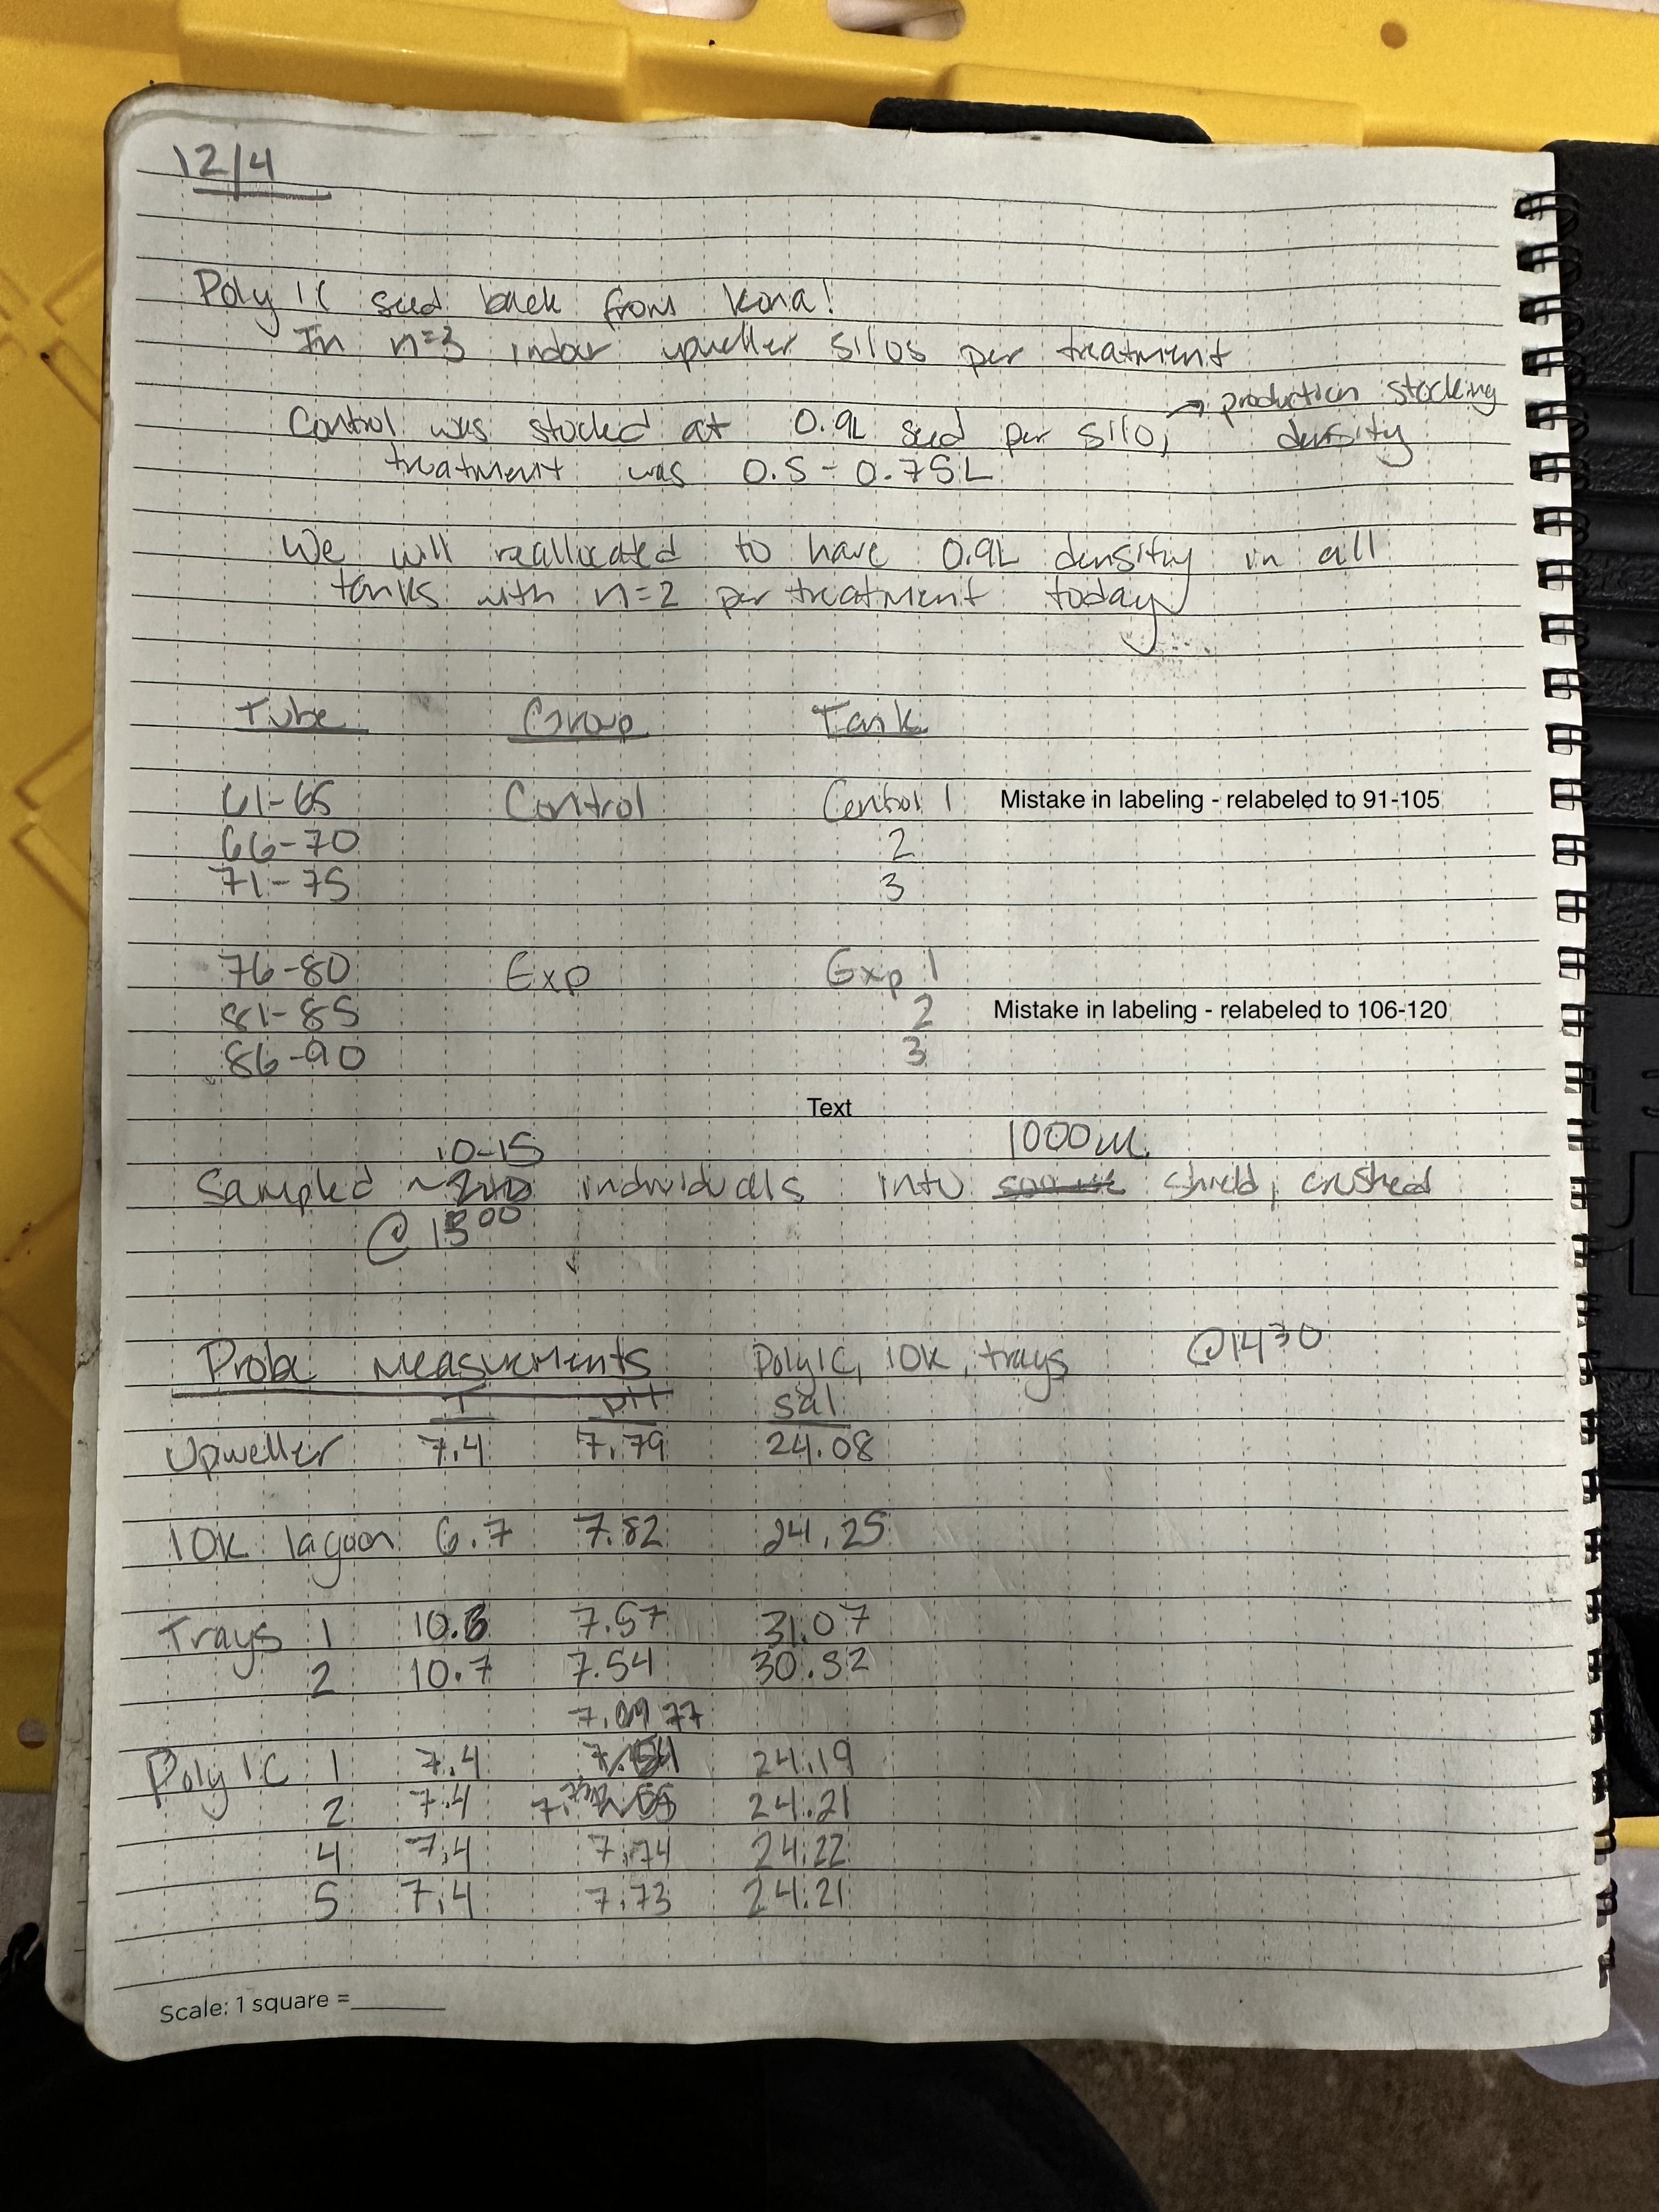 12/4
Poly IC seed back from Kona!
In n=3 indoor upweller silos per treatment
Control was stocked at 0.9L seed per silo, → production stocking density
treatment was 0.5 - 0.75L
We will reallocated to have 0.9L density in all
tanks with n=2 per treatment today
Tube Group Tank
61-65 Control Control 1 Mistake in labeling - relabeled to 91-105
66-70 2
71-75 3
76-80 Exp Exp 1
81-85 2 Mistake in labeling - relabeled to 106-120
86-90 3
Text
10-15 1000uL
Sampled ~ individuals into shield, crushed
@ 1500
Probe Measurements Poly IC, 10K, trays @1430
T pH Sal
Upweller 7.4 7.79 24.08
10K lagoon 6.7 7.82 24.25
Trays 1 7.57 31.07
2 10.7 7.54 30.32
Poly IC 1 7.4 24.19
2 7.4 24.21
4 7.4 7.74 24.22
5 7.4 7.73 24.21
Scale: 1 square =